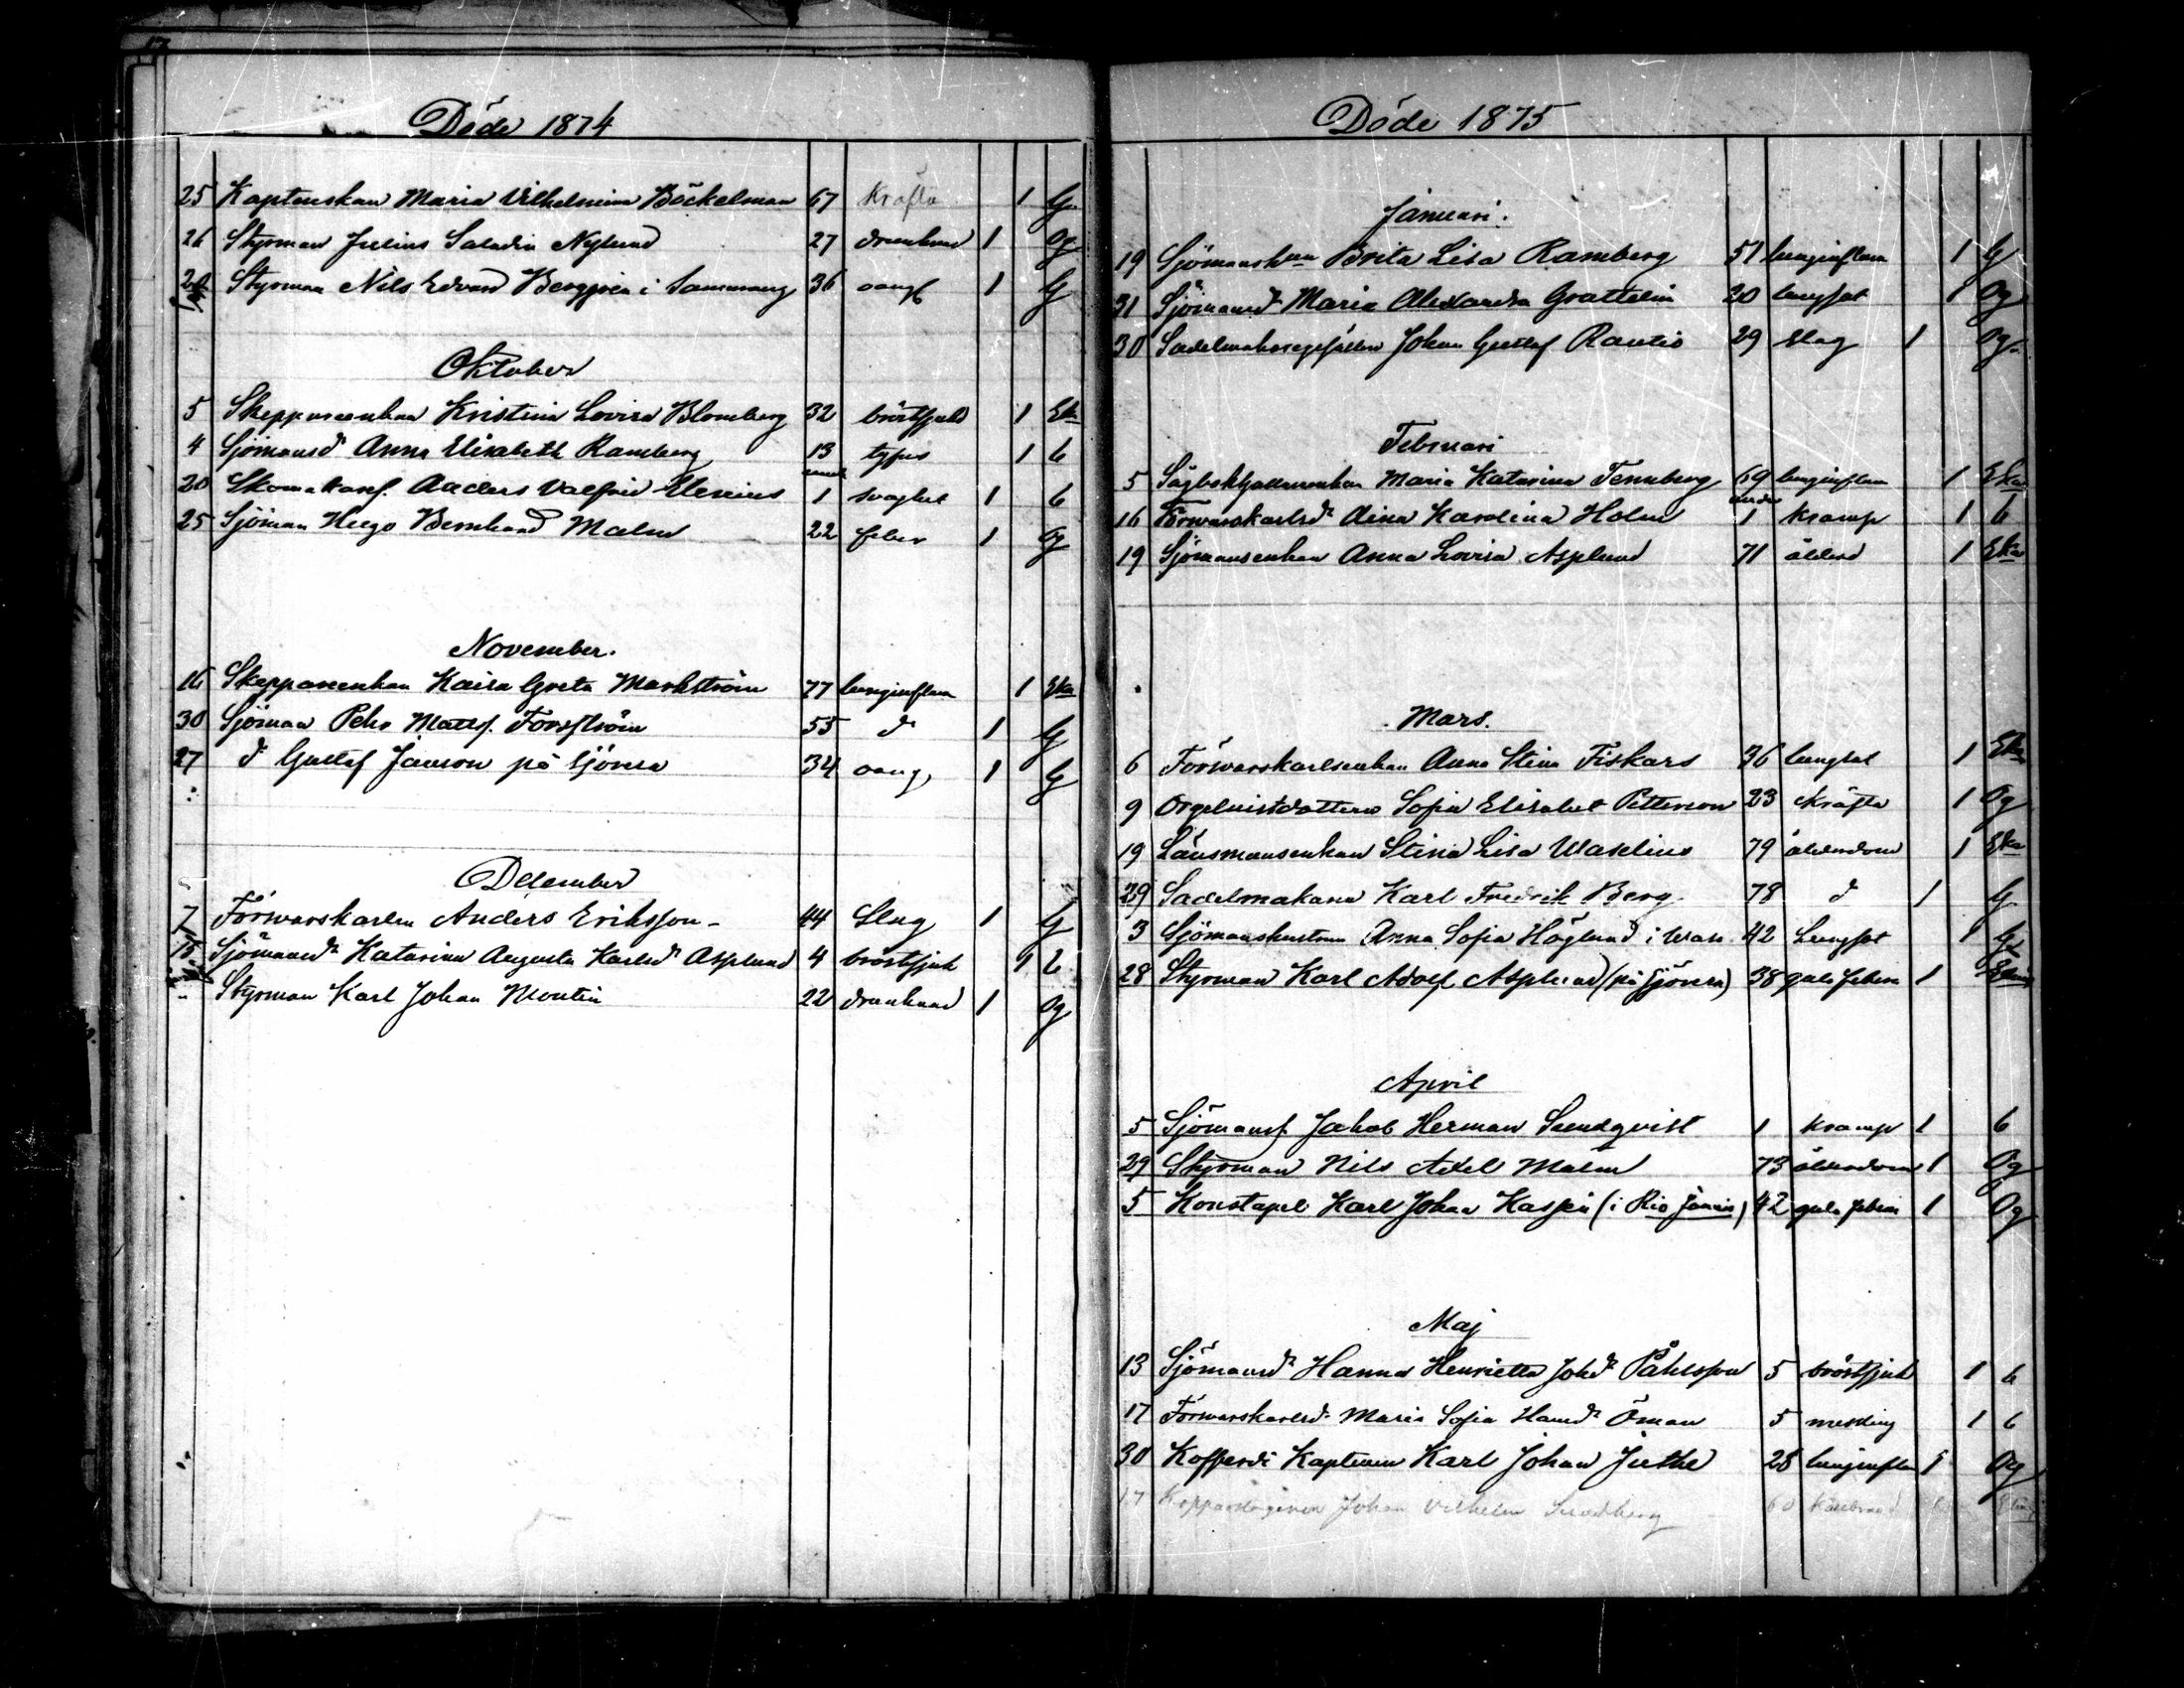 17
Döde 1874
25 Kaptenskan Maria Vilhelmina Böckelman 67 Kräfta 1 G
26 Styrman Julius Saladin Nylund 27 drunknad 1 Og
Styrman Nils Edvard Berggren i 36 oang 1 G
Oktober
5 Skeppareenkan Kristina Lovisa Blomberg 32 bröstsjukd 1 Eka
4 Sjömansdr Anna Elisabeth Ramberg 13 typus 1 b
20 Skomakaref. Anders Valfrid 1 svaghet 1 b
25 Sjöman Hugo Bernhard Malm 22 feber 1 Og
November.
16 Skeppareenkan Kaisa Greta Markström 77 lunginflam 1 Eka
30 Sjöman Pehr Mattss. Forsström 55 d 1 G
27 d Gustaf Janson på sjöresa 34 oang 1 G
December
7 Förvarskarlen Anders Eriksson 44 Slag 1 G
15 Sjömansdr Katarina Augusta Karlsdr Asplund 4 bröstsjuk 1 b
Styrman Karl Johan Montin 22 drunknad 1 Og
Döde 1875
Januari.
19 Sjömanskan Brita Lisa Ramberg 51 lunginflam 1 G
31 Sjömansdr Maria Alexandra 20 lungsot 1 Og
30 Sadelmakaregesällen Johan Gustaf Rautio 29 slag 1 Og
Februari
5 Maria Katarina Tennberg 69 lunginflam 1 Eka
16 Förvarskarlsdr Aina Karolina Holm 1 kramp 1 b
19 Sjömansenkan Anna Lovisa Asplund 71 ålderd 1 Eka
Mars.
6 Förvarskarlsenkan Anna Stina Fiskars 36 lungsot 1 Eka
9 Orgelnistdottern Sofia Elisabet Petterson 23 Kräfta 1 Og
19 Länsmansenkan Stina Lisa Waselius 79 ålderdom 1 Eka
29 Sadelmakaren Karl Fredrik Berg 78 d 1 G
3 Sjömanshustrun Anna Sofia Höglund i Wasa 42 Lungsot 1 G
28 Styrman Karl Adolf Asplund (på sjöresa) 38 gula febern 1
April
5 Sjömansf. Jakob Herman Sundqvist 1 kramp 1 b
29 Styrman Nils Axel Malm 73 ålderdom 1 Og
5 Konstapel Karl Johan Kasén (i Rio Janeir) 42 gula febern 1 Og
Maj
13 Sjömansdr Hanna Henrietta Johdr Påhlsson 5 bröstsjuk 1 b
17 Förvarskarlsdr Maria Sofia Öman 5 messling 1 b
30 Kofferdi Kaptenen Karl Johan Juthe 28 lunginflam 1 Og
17 Kopparslagaren Johan Vilhelm 60 Kallbrand